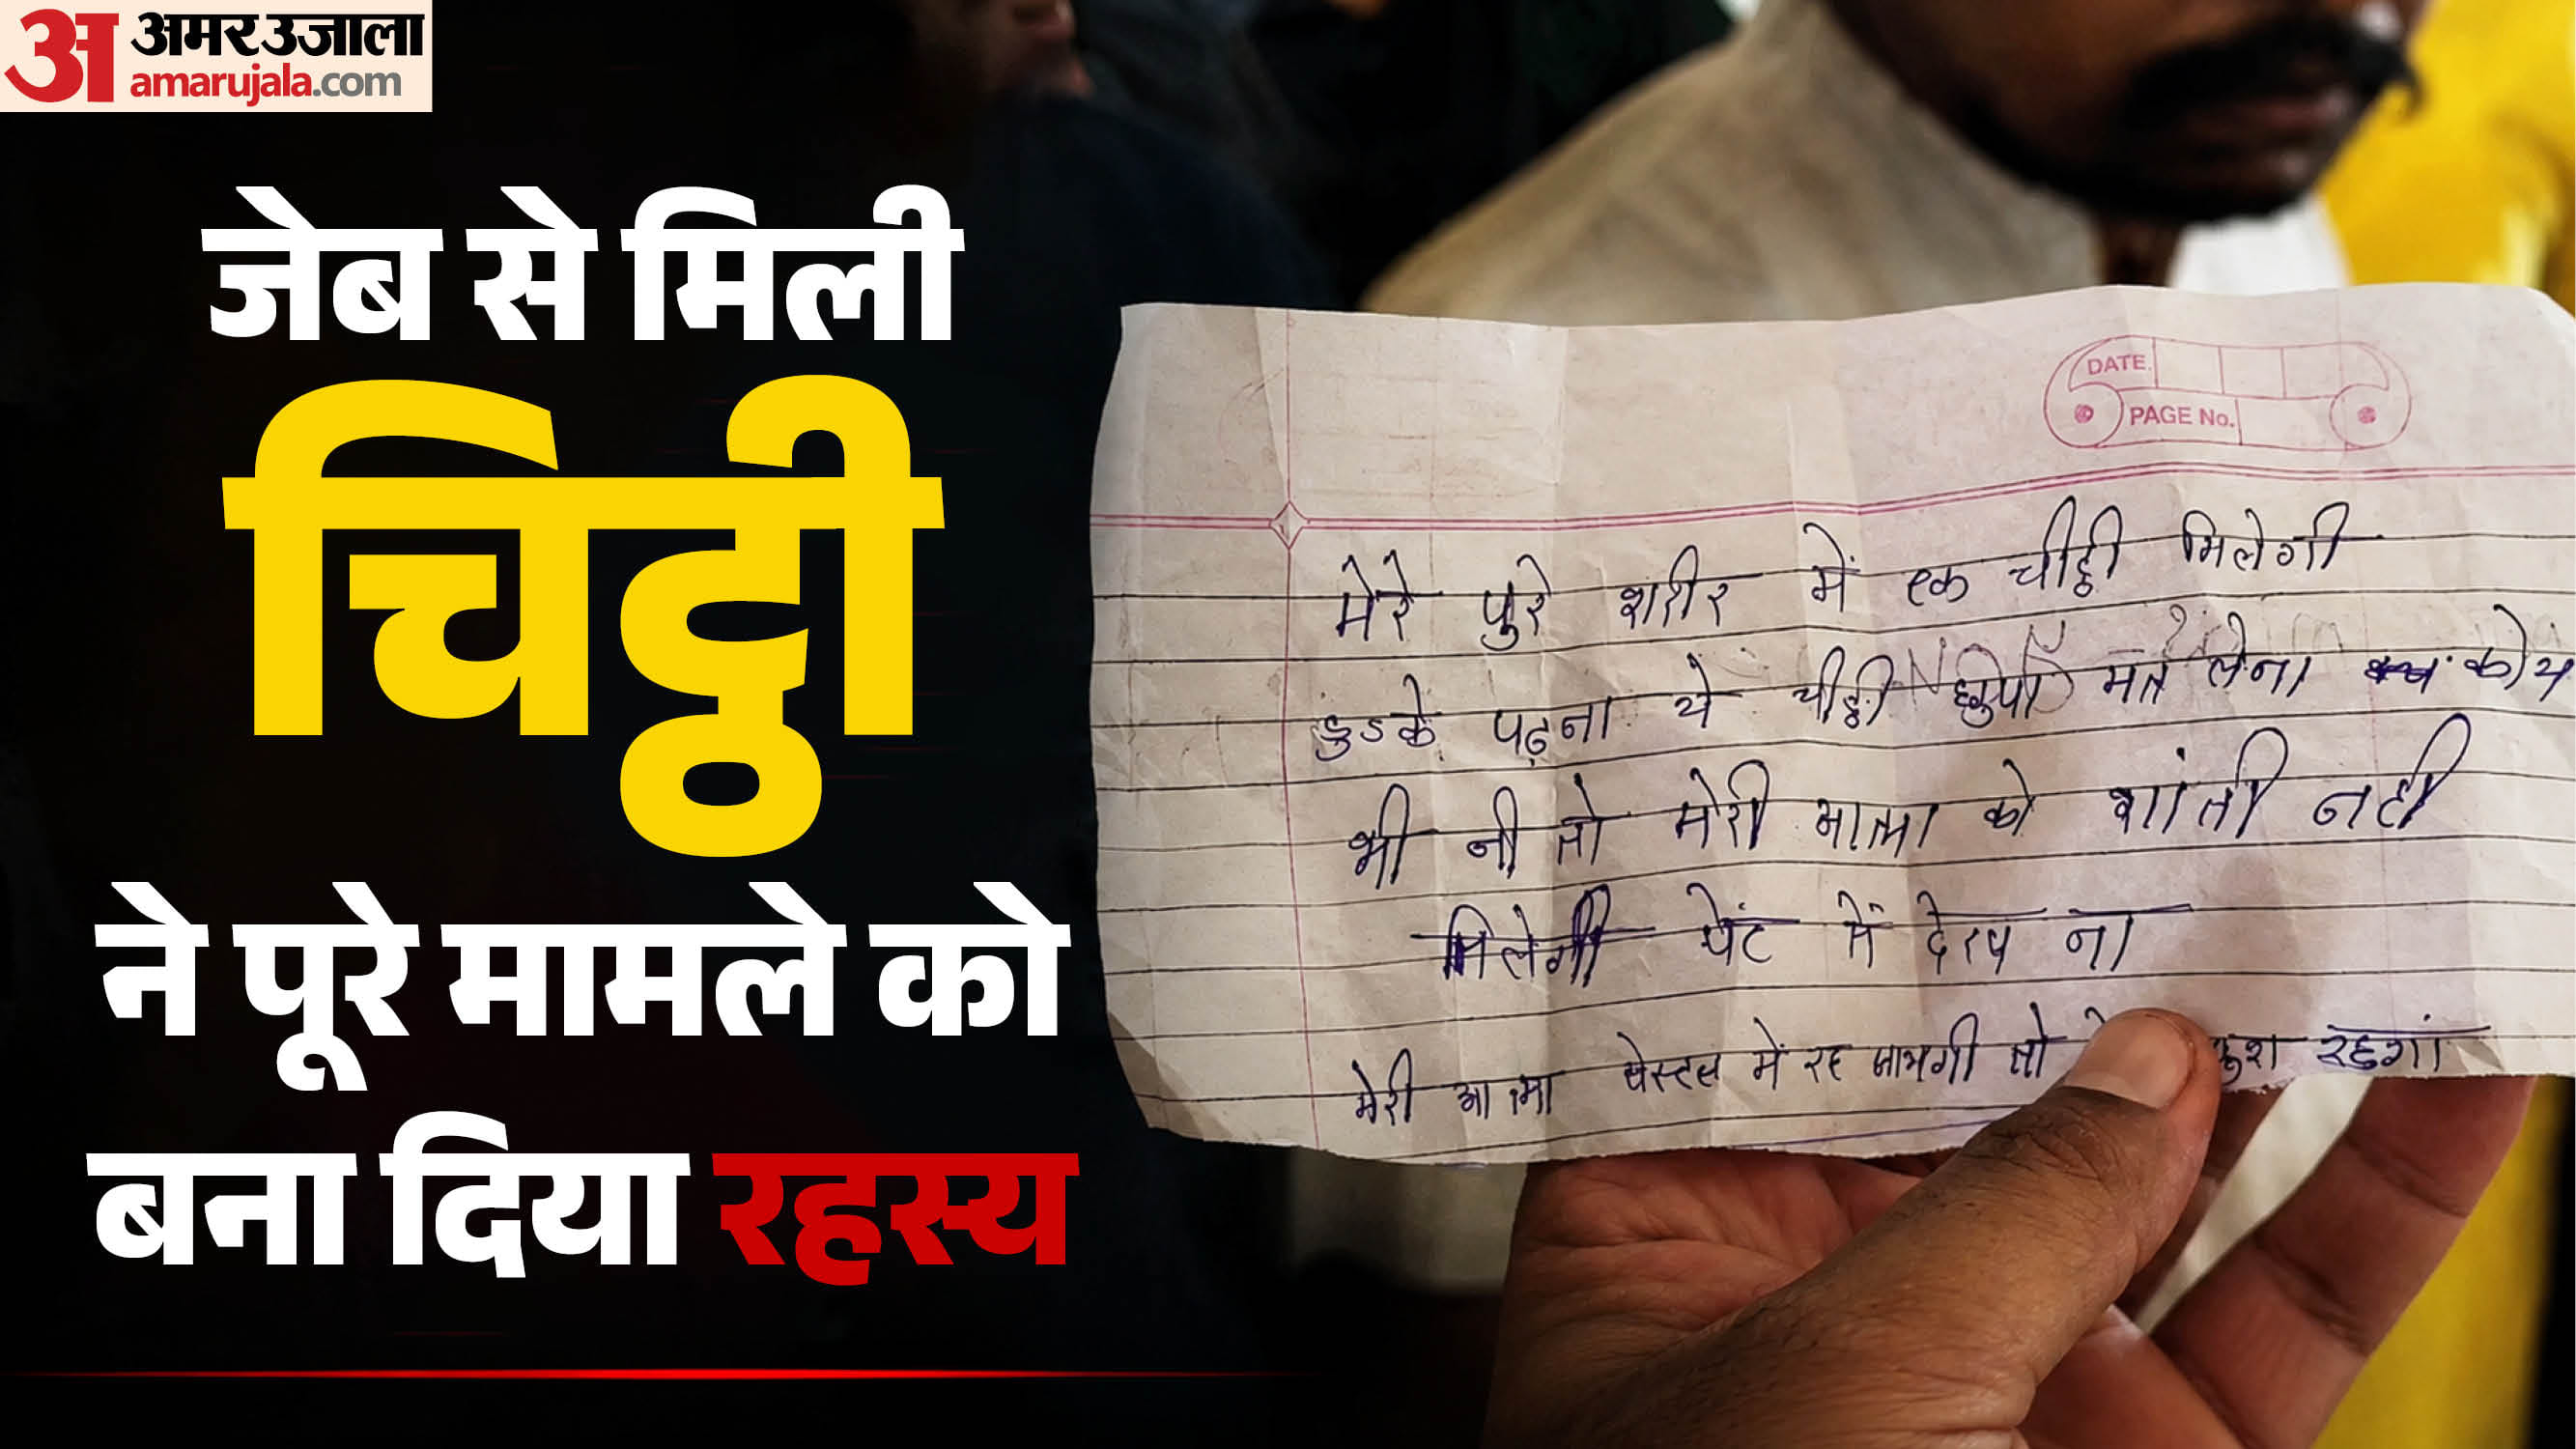 अमर उजाला
amarujala.com
जेब से मिली
चिट्ठी
ने पूरे मामले को
बना दिया रहस्य
DATE
PAGE No.
मेरे पुरे शरीर में एक चीठ्ठी मिलेगी
पढ़ना ये चीठ्ठी छुपा मत लेना कोय
भी नी तो मेरी आत्मा को शांती नही
मिलेगी पेंट में देख ना
मेरी आत्मा में रह जायगी तो